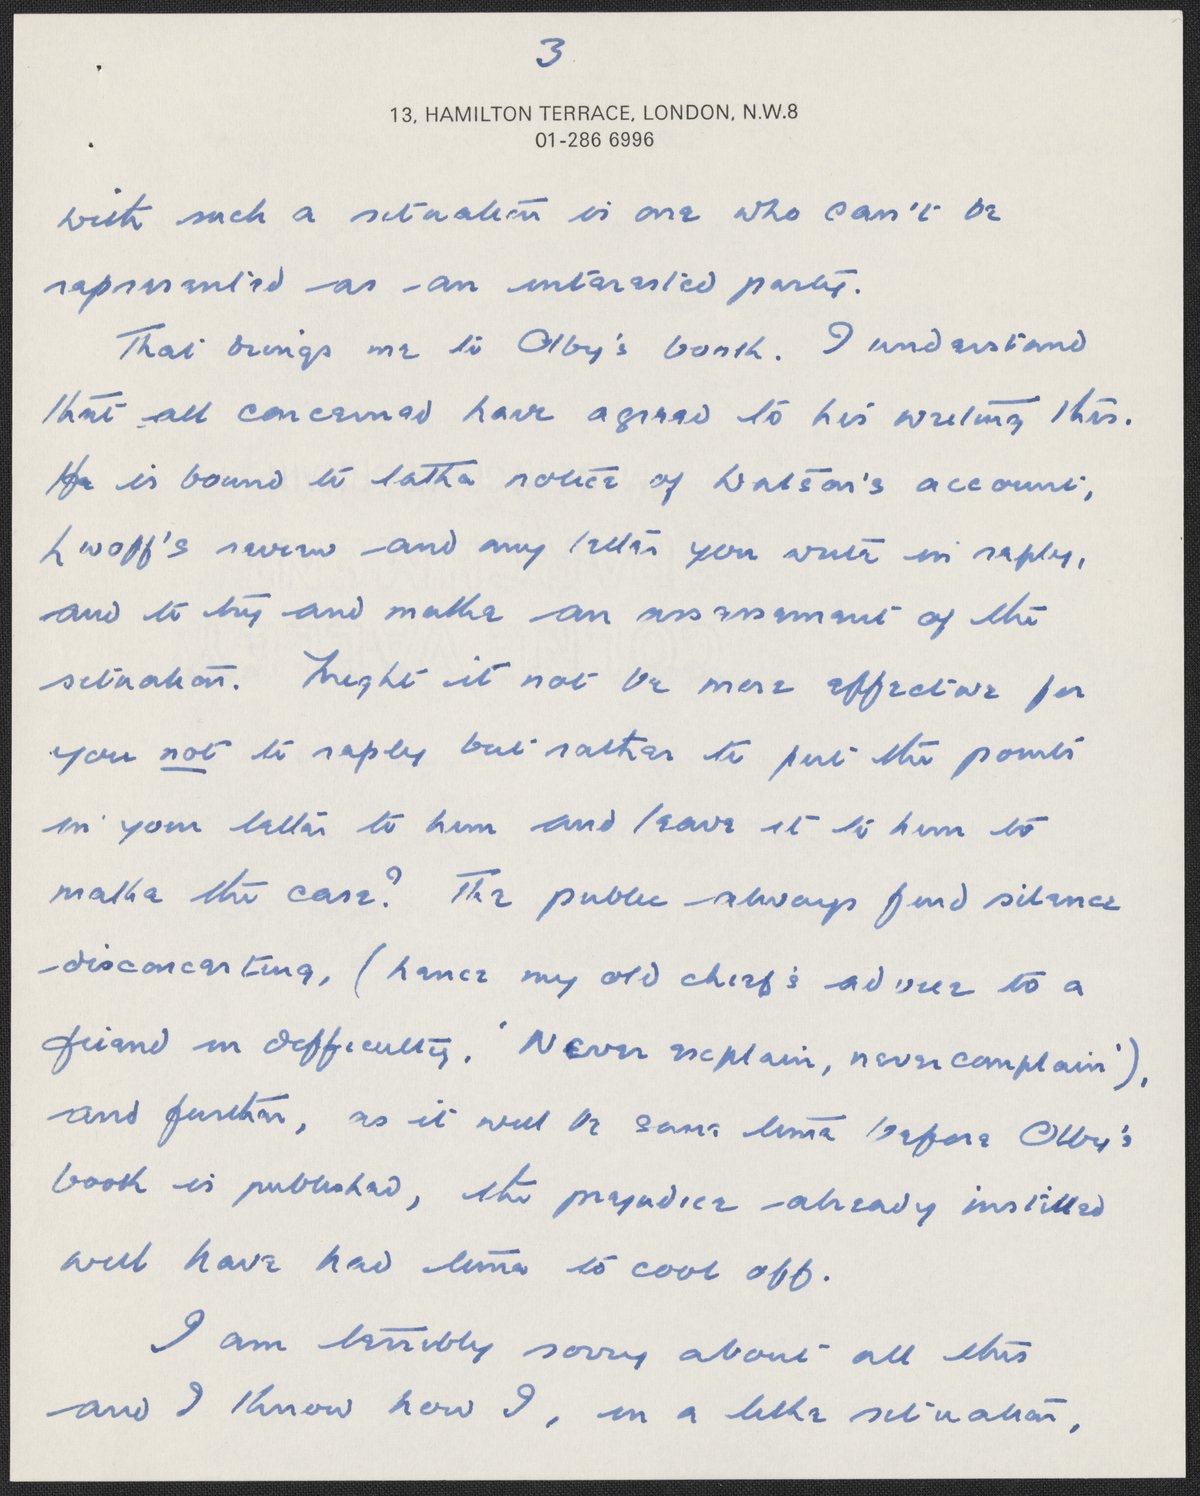 3
13, HAMILTON TERRACE, LONDON, N.W.8
01-286 6996
with such a situation is one who can't be
represented as an interested party.
That brings me to Olby's book. I understand
that all concerned have agreed to his writing this.
He is bound to take notice of Watson's account,
Lwoff's review and any letter you write in reply,
and to try and make an assessment of the
situation. Might it not be more effective for
you not to reply but rather to put the points
in your letter to him and leave it to him to
make the case? The public always find silence
disconcerting, (hence my old chief's advice to a
friend in difficulty, 'Never explain, never complain'),
and further, as it will be some time before Olby's
book is published, the prejudice already instilled
will have had time to cool off.
I am terribly sorry about all this
and I know how I, in a like situation,